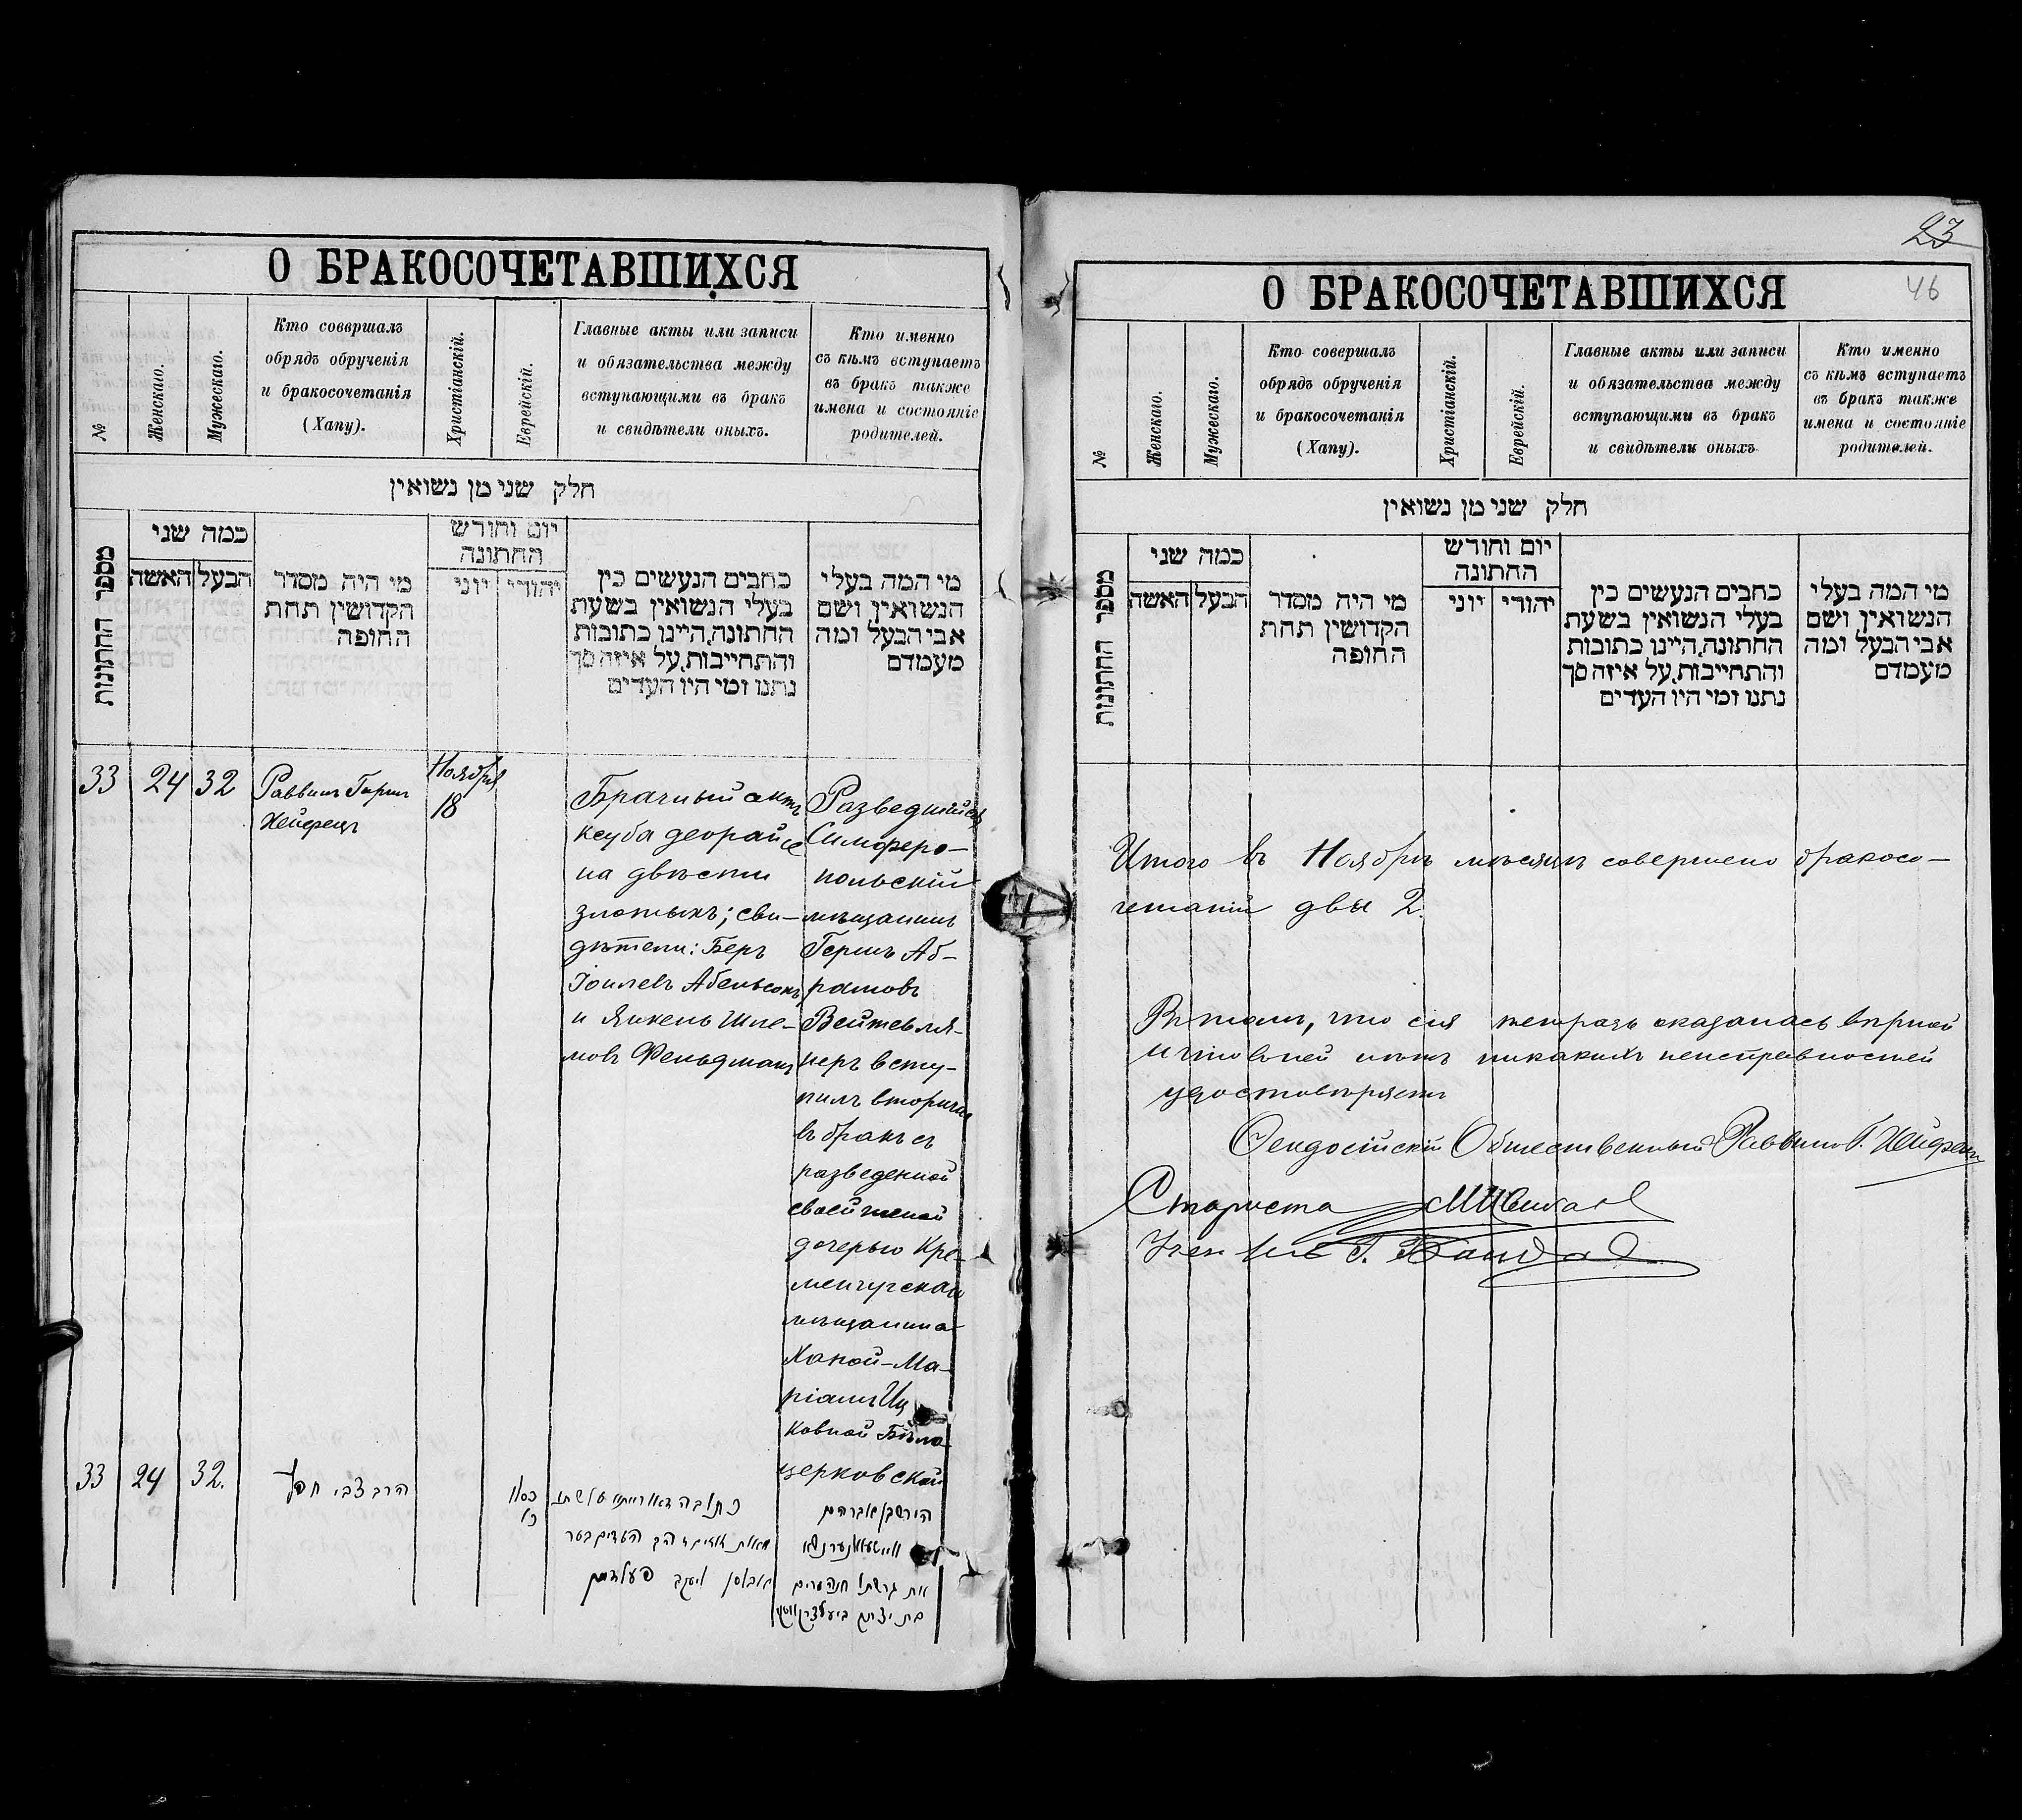 О БРАКОСОЧЕТАВШИХСЯ
№
Женскаго.
Мужескаго.
Кто совершалъ
обрядъ обрученія
и бракосочетанія
(Хапу).
Христіанскій.
Еврейскій.
Главные акты или записи
и обязательства между
вступающими въ бракъ
и свидѣтели оныхъ.
Кто именно
съ кѣмъ вступаетъ
въ бракъ также
имена и состояніе
родителей.
חלק שני מן נשואין
מספר החתונות
כמה שני
האשה
הבעל
מי היה מסדר
הקדושין תחת
החופה
יום וחודש
החתונה
יוני
יהודי
כתבים הנעשים בין
בעלי הנשואין בשעת
החתונה, היינו כתובות
והתחייבות, על איזה סך
נתנו ומי היו העדים
מי המה בעלי
הנשואין ושם
אבי הבעל ומה
מעמדם
33
24
32
Раввинъ Гирш
Хейфецъ
Ноября
18
Брачный актъ
ксуба деорайсе
на двѣсти
злотыхъ; сви-
дѣтели: Беръ
Іоилевъ Абельсонъ
и Янкель Шле-
мовъ Фельдманъ
Разведшійся
Симферо-
польскій
мѣщанинъ
Гершъ Аб-
рамовъ
неръ всту-
пилъ вторично
въ бракъ съ
разведенной
своей женой
дочерью Кре-
менчугскаго
мѣщанина
Ханой-Ма-
ріамъ Иц
ковной Бѣло
церковской
33
24
32.
הרב צבי חפץ
כסלו
כתובה דאורייתא
העדים בער
יעקב פעלדמאן
הירש בן אברהם
את גרשתו חנה מרים
בת יצחק
23
46
О БРАКОСОЧЕТАВШИХСЯ
№
Женскаго.
Мужескаго.
Кто совершалъ
обрядъ обрученія
и бракосочетанія
(Хапу).
Христіанскій.
Еврейскій.
Главные акты или записи
и обязательства между
вступающими въ бракъ
и свидѣтели оныхъ
Кто именно
съ кѣмъ вступаетъ
въ бракъ также
имена и состояніе
родителей.
חלק שני מן נשואין
מספר החתונות
כמה שני
האשה
הבעל
מי היה מסדר
הקדושין תחת
החופה
יום וחודש
החתונה
יוני
יהודי
כתבים הנעשים בין
בעלי הנשואין בשעת
החתונה, היינו כתובות
והתחייבות, על איזה סך
נתנו ומי היו העדים
מי המה בעלי
הנשואין ושם
אבי הבעל ומה
מעמדם
Итого въ Ноябрѣ мѣсяцѣ совершено бракосо-
четаній два 2.
В томъ, что сія тетрадь оказалась вѣрной
и что въ ней нѣтъ никакихъ неисправностей
удостовѣряетъ
Ѳеодосійскій Общественный Раввинъ Г. Хейфецъ
Староста